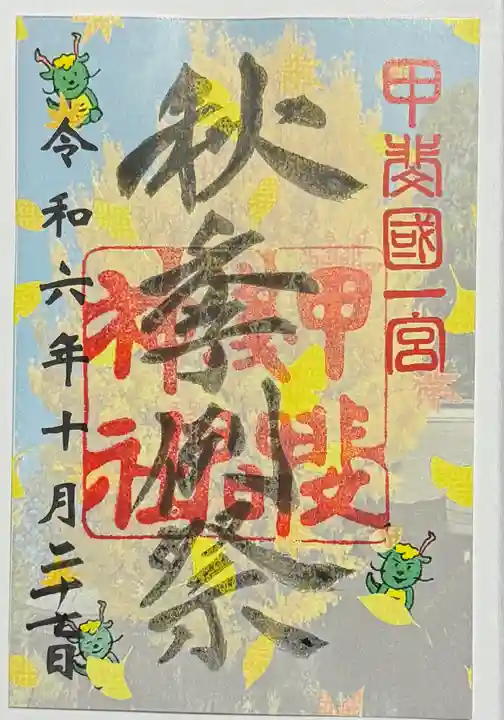 甲斐國一宮
秋季例祭
甲斐
淺間
神社
令和六年十月二十七日